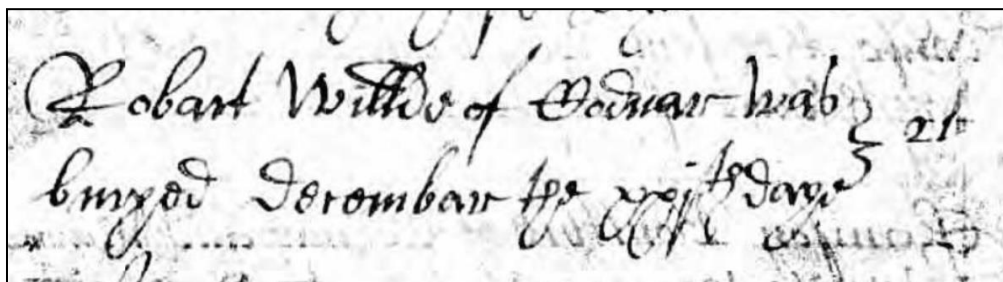 Robart Willde of Codnar was } 21
buryed decembar the xxjth daye